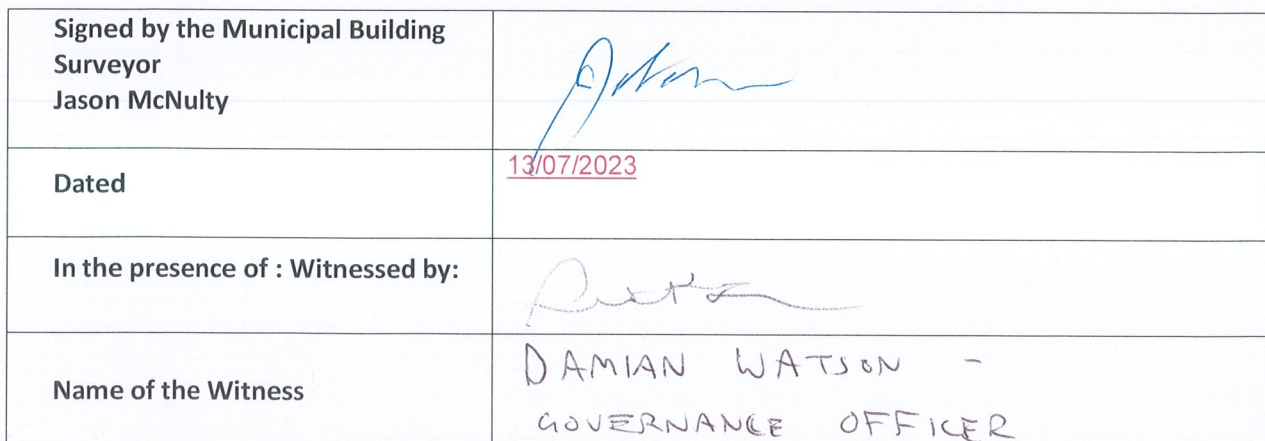 Signed by the Municipal Building
Surveyor
Jason McNulty
Dated
13/07/2023
In the presence of : Witnessed by:
Name of the Witness
DAMIAN WATSON -
GOVERNANCE OFFICER